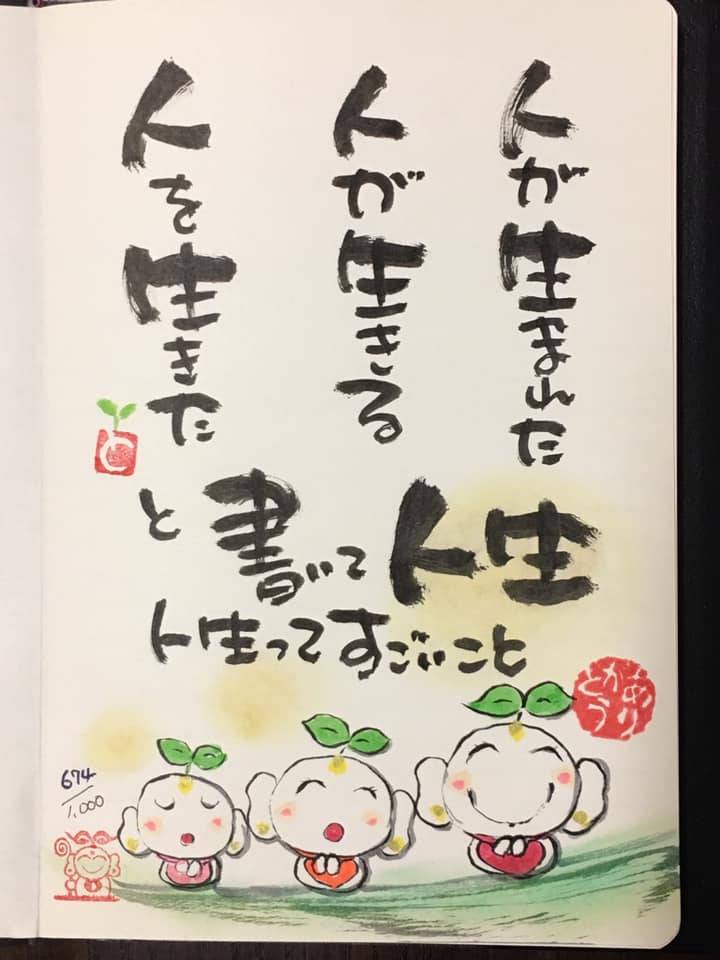 人が生まれた
人が生きる
人を生きた
と書いて人生
人生ってすごいこと
と
ありがとう
674/1,000